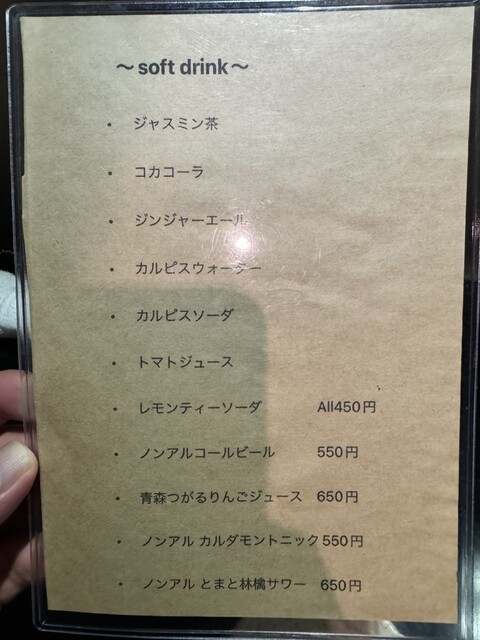 ～soft drink～
・ ジャスミン茶
・ コカコーラ
・ ジンジャーエール
・ カルピスウォーター
・ カルピスソーダ
・ トマトジュース
・ レモンティーソーダ All450円
・ ノンアルコールビール 550円
・ 青森つがるりんごジュース 650円
・ ノンアル カルダモントニック 550円
・ ノンアル とまと林檎サワー 650円